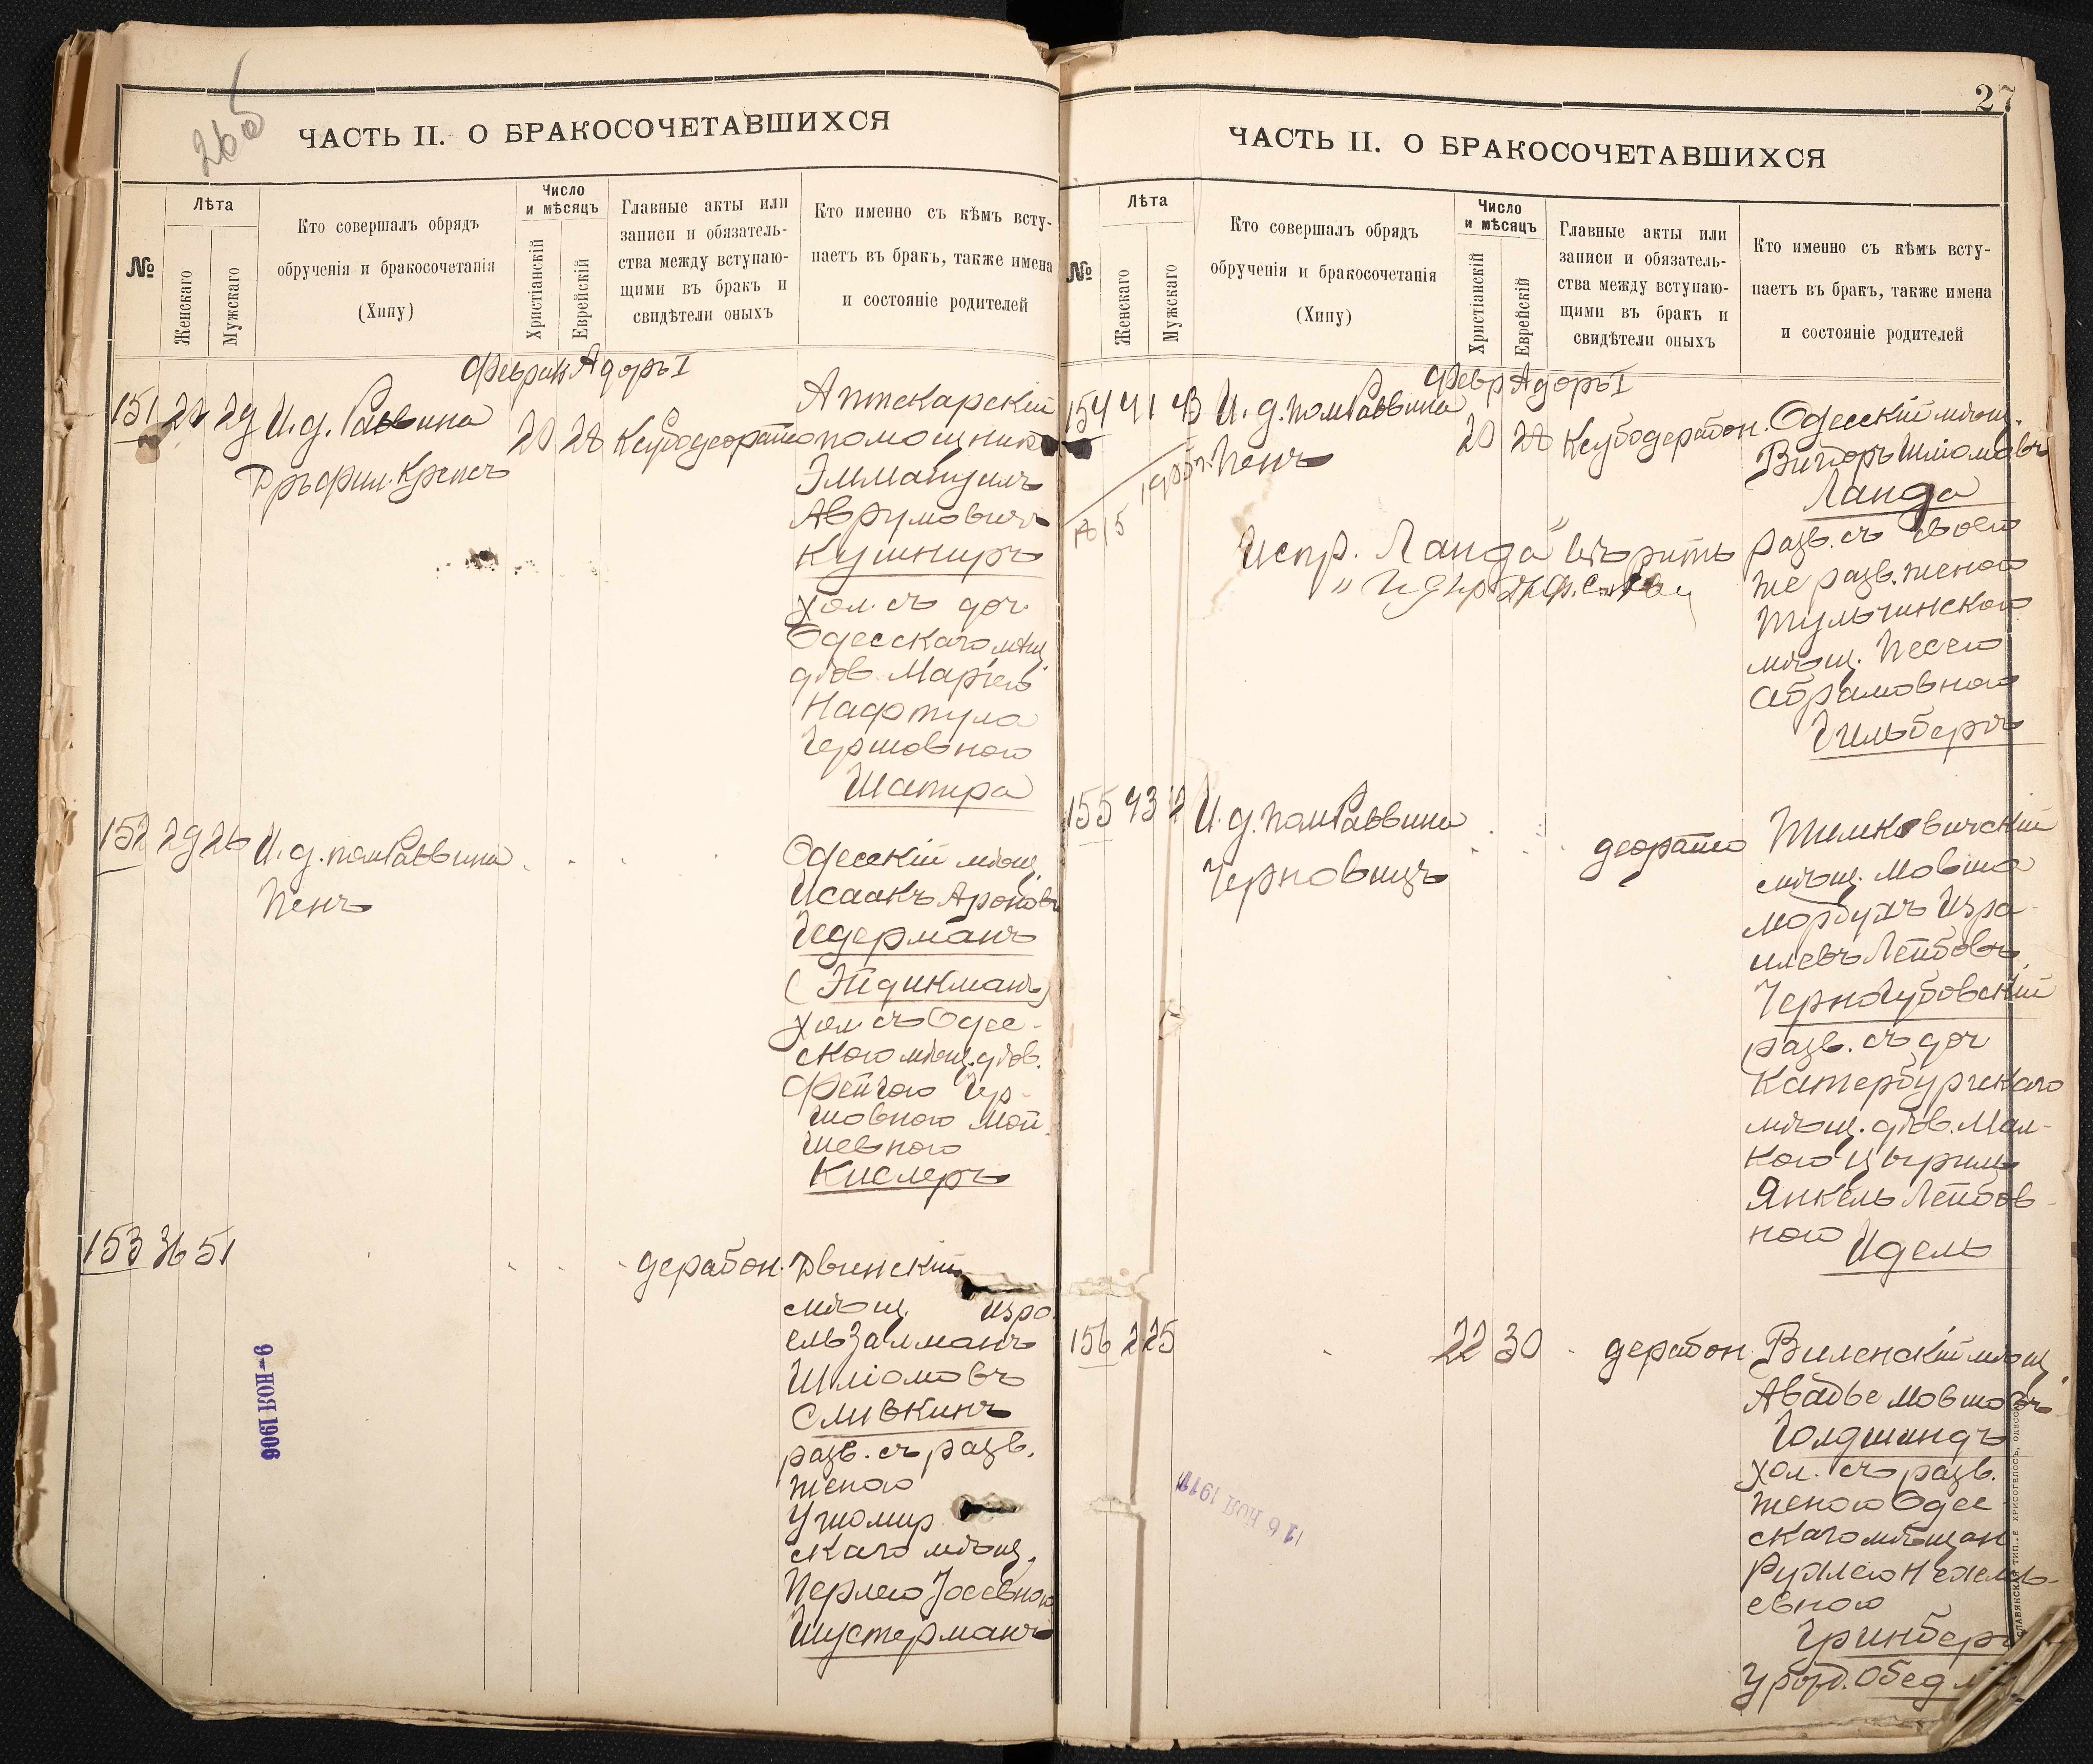 26об
ЧАСТЬ II. О БРАКОСОЧЕТАВШИХСЯ
№
Лѣта
Женскаго
Мужскаго
Кто совершалъ обрядъ
обрученія и бракосочетанія
(Хипу)
Число
и мѣсяцъ
Христіанскій
Еврейскій
Главные акты или
записи и обязатель-
ства между вступаю-
щими въ бракъ и
свидѣтели оныхъ
Кто именно съ кѣмъ всту-
паетъ въ бракъ, также имена
и состояніе родителей
Феврал Адоръ I
151 29 И. д. Раввина
Дръ фил. Крепсъ
20 28
Аптекарскій
помощникъ
Эммануилъ
Аврумовичъ
Кушниръ
хол. съ доч.
Одесскаго мѣщ.
дѣв. Маріею
Нафтула
Гершовною
Шапира
152 29 26 И. д. пом. Раввина
Пенъ
Одесскій мѣщ.
Исаакъ Ароновъ
Гедерманъ
(Эйдикманъ)
хол. съ Одес-
скою мѣщ. дѣв.
Фейгою Гер-
шовною Мой-
шевною
Кислеръ
153 36 51
дерабон. Двинскій
мѣщ. Изра
ель Залманъ
Шліомовъ
Сливкинъ
разв. съ разв.
женою
Ушомир
скаго мѣщ.
Перлею Іосевною
Шустерманъ
9 - НОЯ 1906
27
ЧАСТЬ II. О БРАКОСОЧЕТАВШИХСЯ
№
Лѣта
Женскаго
Мужскаго
Кто совершалъ обрядъ
обрученія и бракосочетанія
(Хипу)
Число
и мѣсяцъ
Христіанскій
Еврейскій
Главные акты или
записи и обязатель-
ства между вступаю-
щими въ бракъ и
свидѣтели оныхъ
Кто именно съ кѣмъ всту-
паетъ въ бракъ, также имена
и состояніе родителей
Февр Адоръ I
154 41 43 И. д. пом. Раввина
Пенъ
20 28
Одесскій мѣщ.
Вигдоръ Шліомовъ
Ланда
разв. съ своею
же разв. женою
Тульчинскою
мѣщ. Песею
Абрамовною
Гильбергъ
Испр. „Ланда" вѣрить
155 43 И. д. пом. Раввина
Черновицъ
деорайто
Тимковичскій
мѣщ. Мовша
Мордухъ Изра-
илевъ Лейбовъ
Черногубовскій
разв. съ доч
Катербургскаго
мѣщ. дѣв. Мал-
кою Цыриль
Янкель Лейбов-
ною Идель
156 22 25
22 30
дерабон. Виленскій мѣщ
Авадье Мовшовъ
Голдшиндъ
хол. съ разв.
женою Одес
скаго мѣщан
Рухлею Нехемь-
евною
Гринберг
Урожд. Обед
6 НОЯ 1911
СЛАВЯНСКАЯ ТИП. Е. ХРИСОГЕЛОСЪ, ОДЕССА